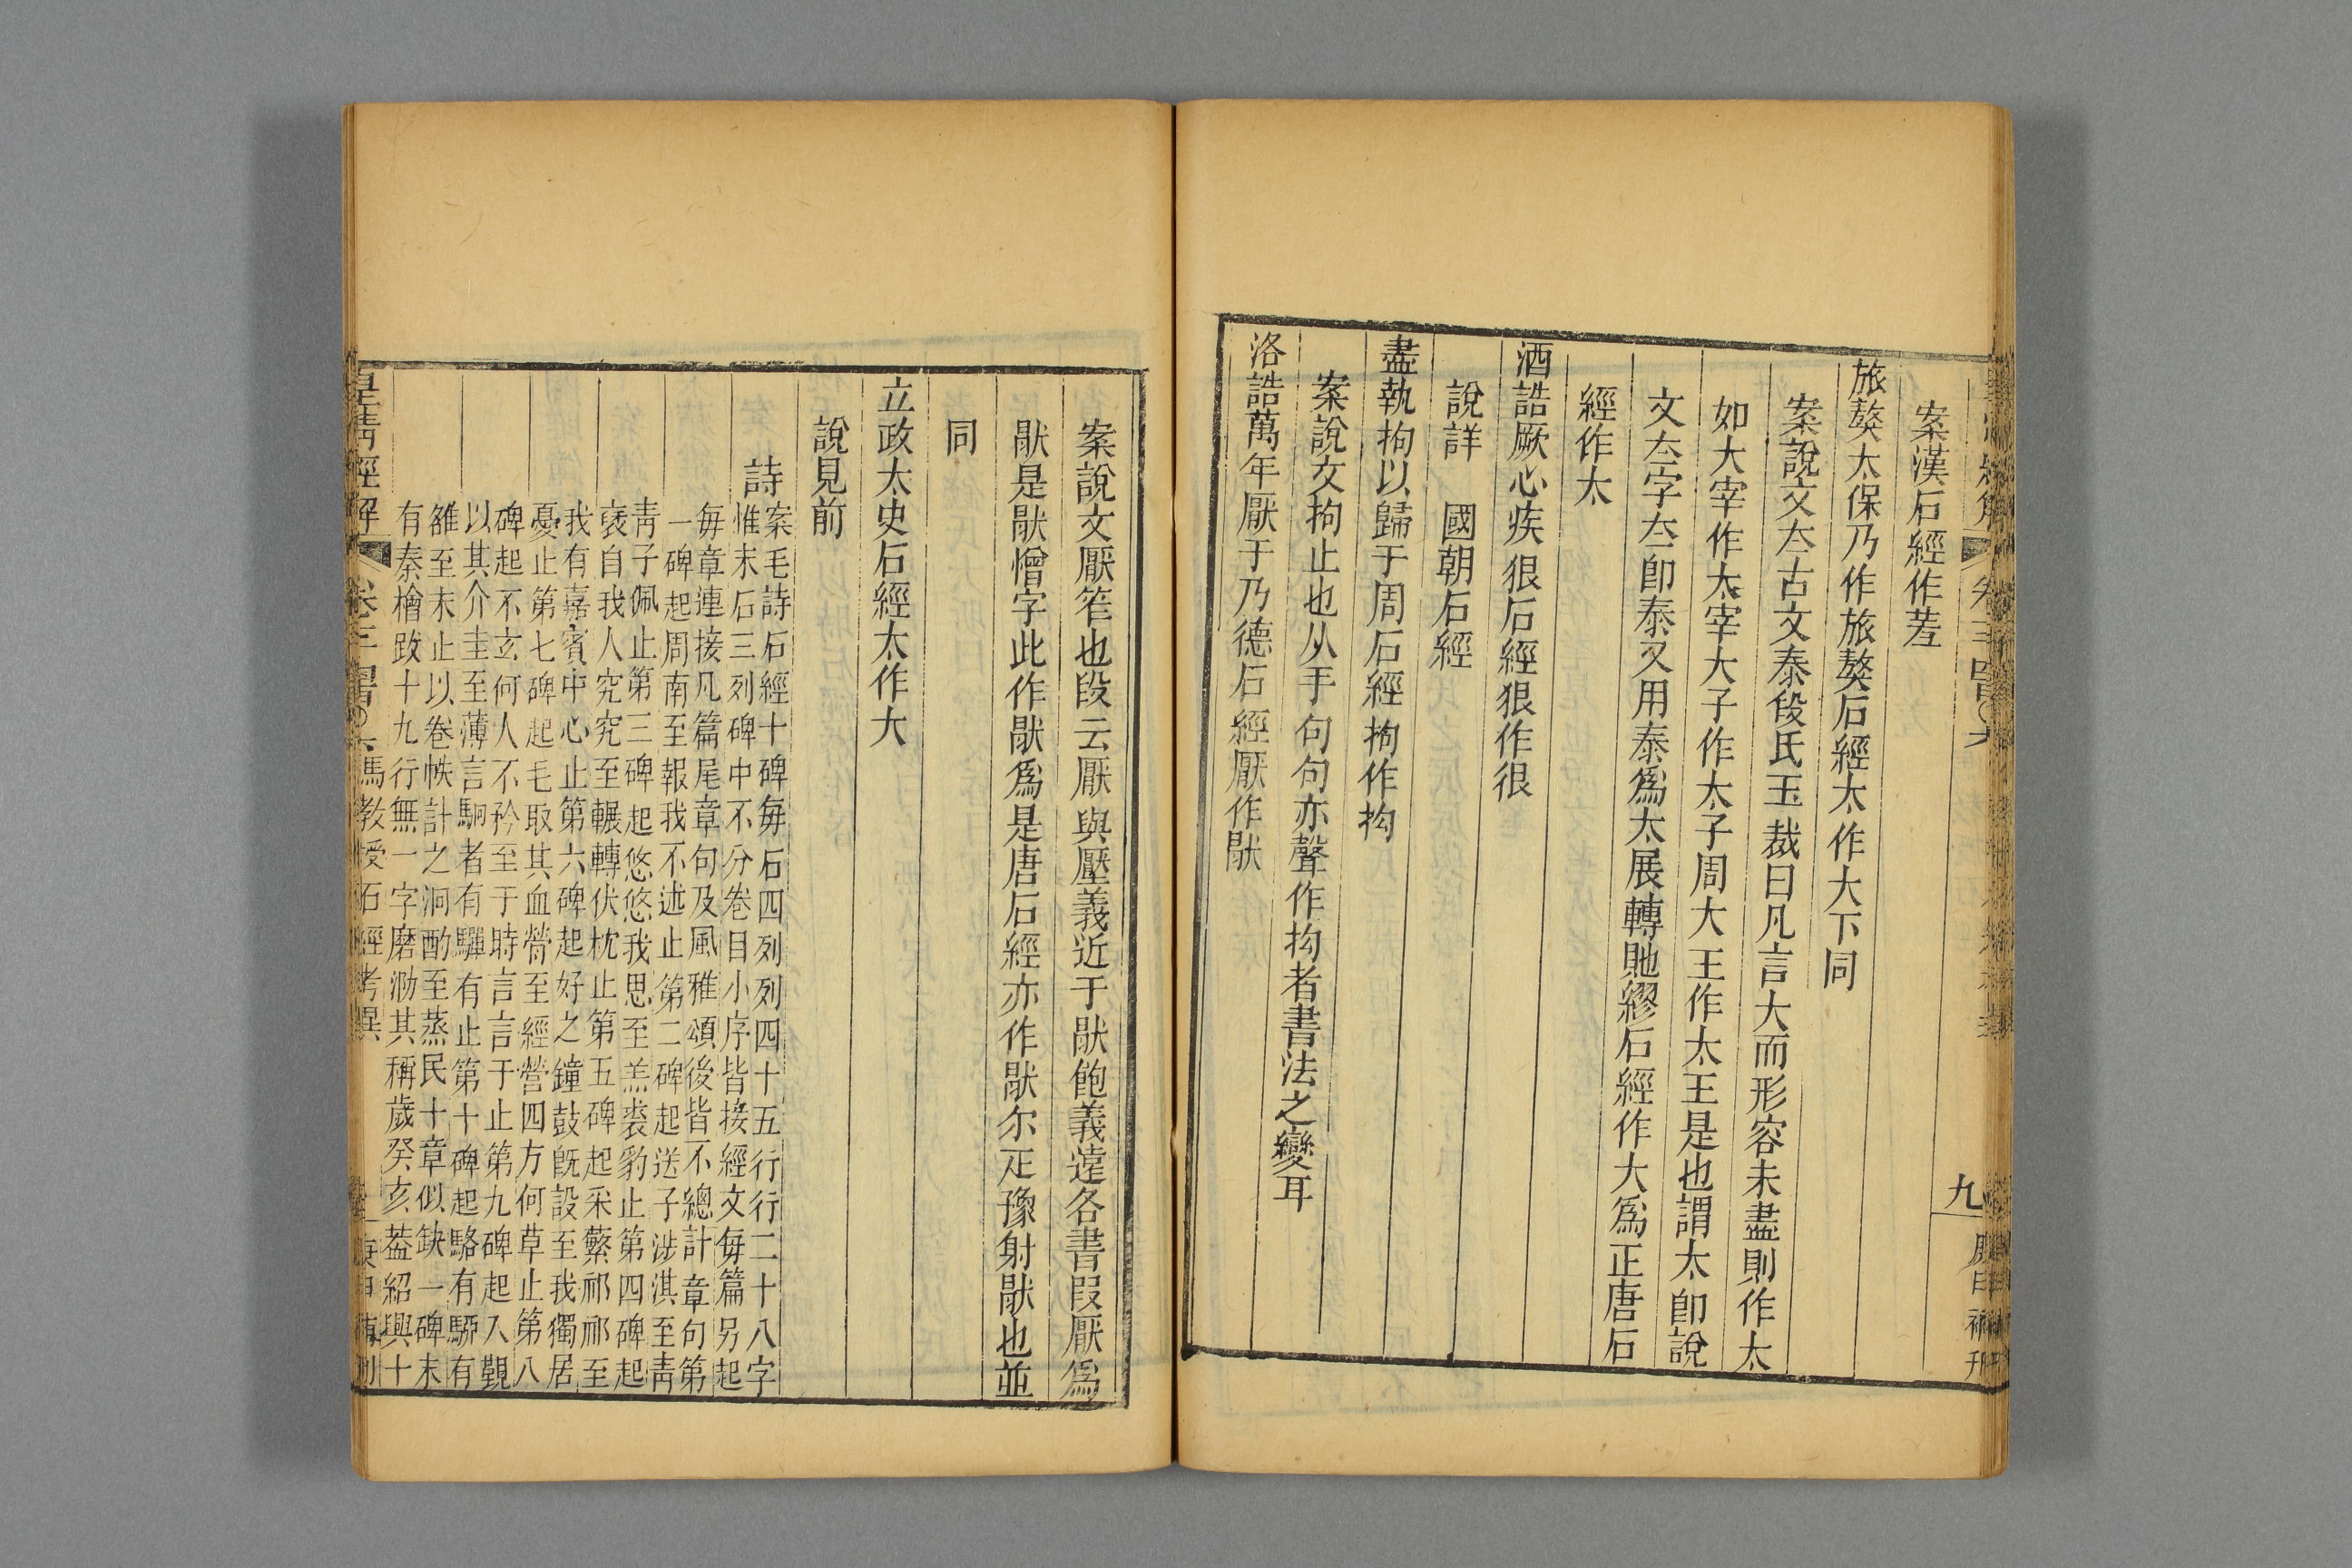 案漢石經作䒲
旅獒太保乃作旅獒石經太作大下同
案說文夳古文泰段氏玉裁曰凡言大而形容未盡則作太
如大宰作太宰大子作太子周大王作太王是也謂太卽說
文夳字夳卽泰又用泰爲太展轉貤繆石經作大爲正唐石
經作太
酒誥厥心疾很石經狠作很
說詳 國朝石經
盡執拘以歸于周石經拘作抅
案說文拘止也从手句句亦聲作抅者書法之變耳
洛誥萬年厭于乃德石經厭作猒
九
庚申補刊
案說文厭笮也段云厭與壓義近于猒飽義遠各書叚厭爲
猒是猒憎字此作猒爲是唐石經亦作猒尔疋豫射猒也並
同
立政太史石經太作大
說見前
詩
案毛詩石經十碑每石四列列四十五行行二十八字
惟末石三列碑中不分卷目小序皆接經文每篇另起
每章連接凡篇尾章句及風雅頌後皆不總計章句第
一碑起周南至報我不述止第二碑起送子涉淇至靑
靑子佩止第三碑起悠悠我思至羔裘豹止第四碑起
褎自我人究究至輾轉伏枕止第五碑起采蘩祁祁至
我有嘉賓中心止第六碑起好之鐘鼓旣設至我獨居
憂止第七碑起毛取其血膋至經營四方何草止第八
碑起不玄何人不矜至于時言言于止第九碑起入覲
以其介圭至薄言駉者有驒有止第十碑起駱有駵有
雒至末止以卷帙計之泂酌至蒸民十章似缺一碑末
有秦檜跋十九行無一字磨泐其稱歲癸亥葢紹興十
皇淸經解 卷三 馮敎授石經考異